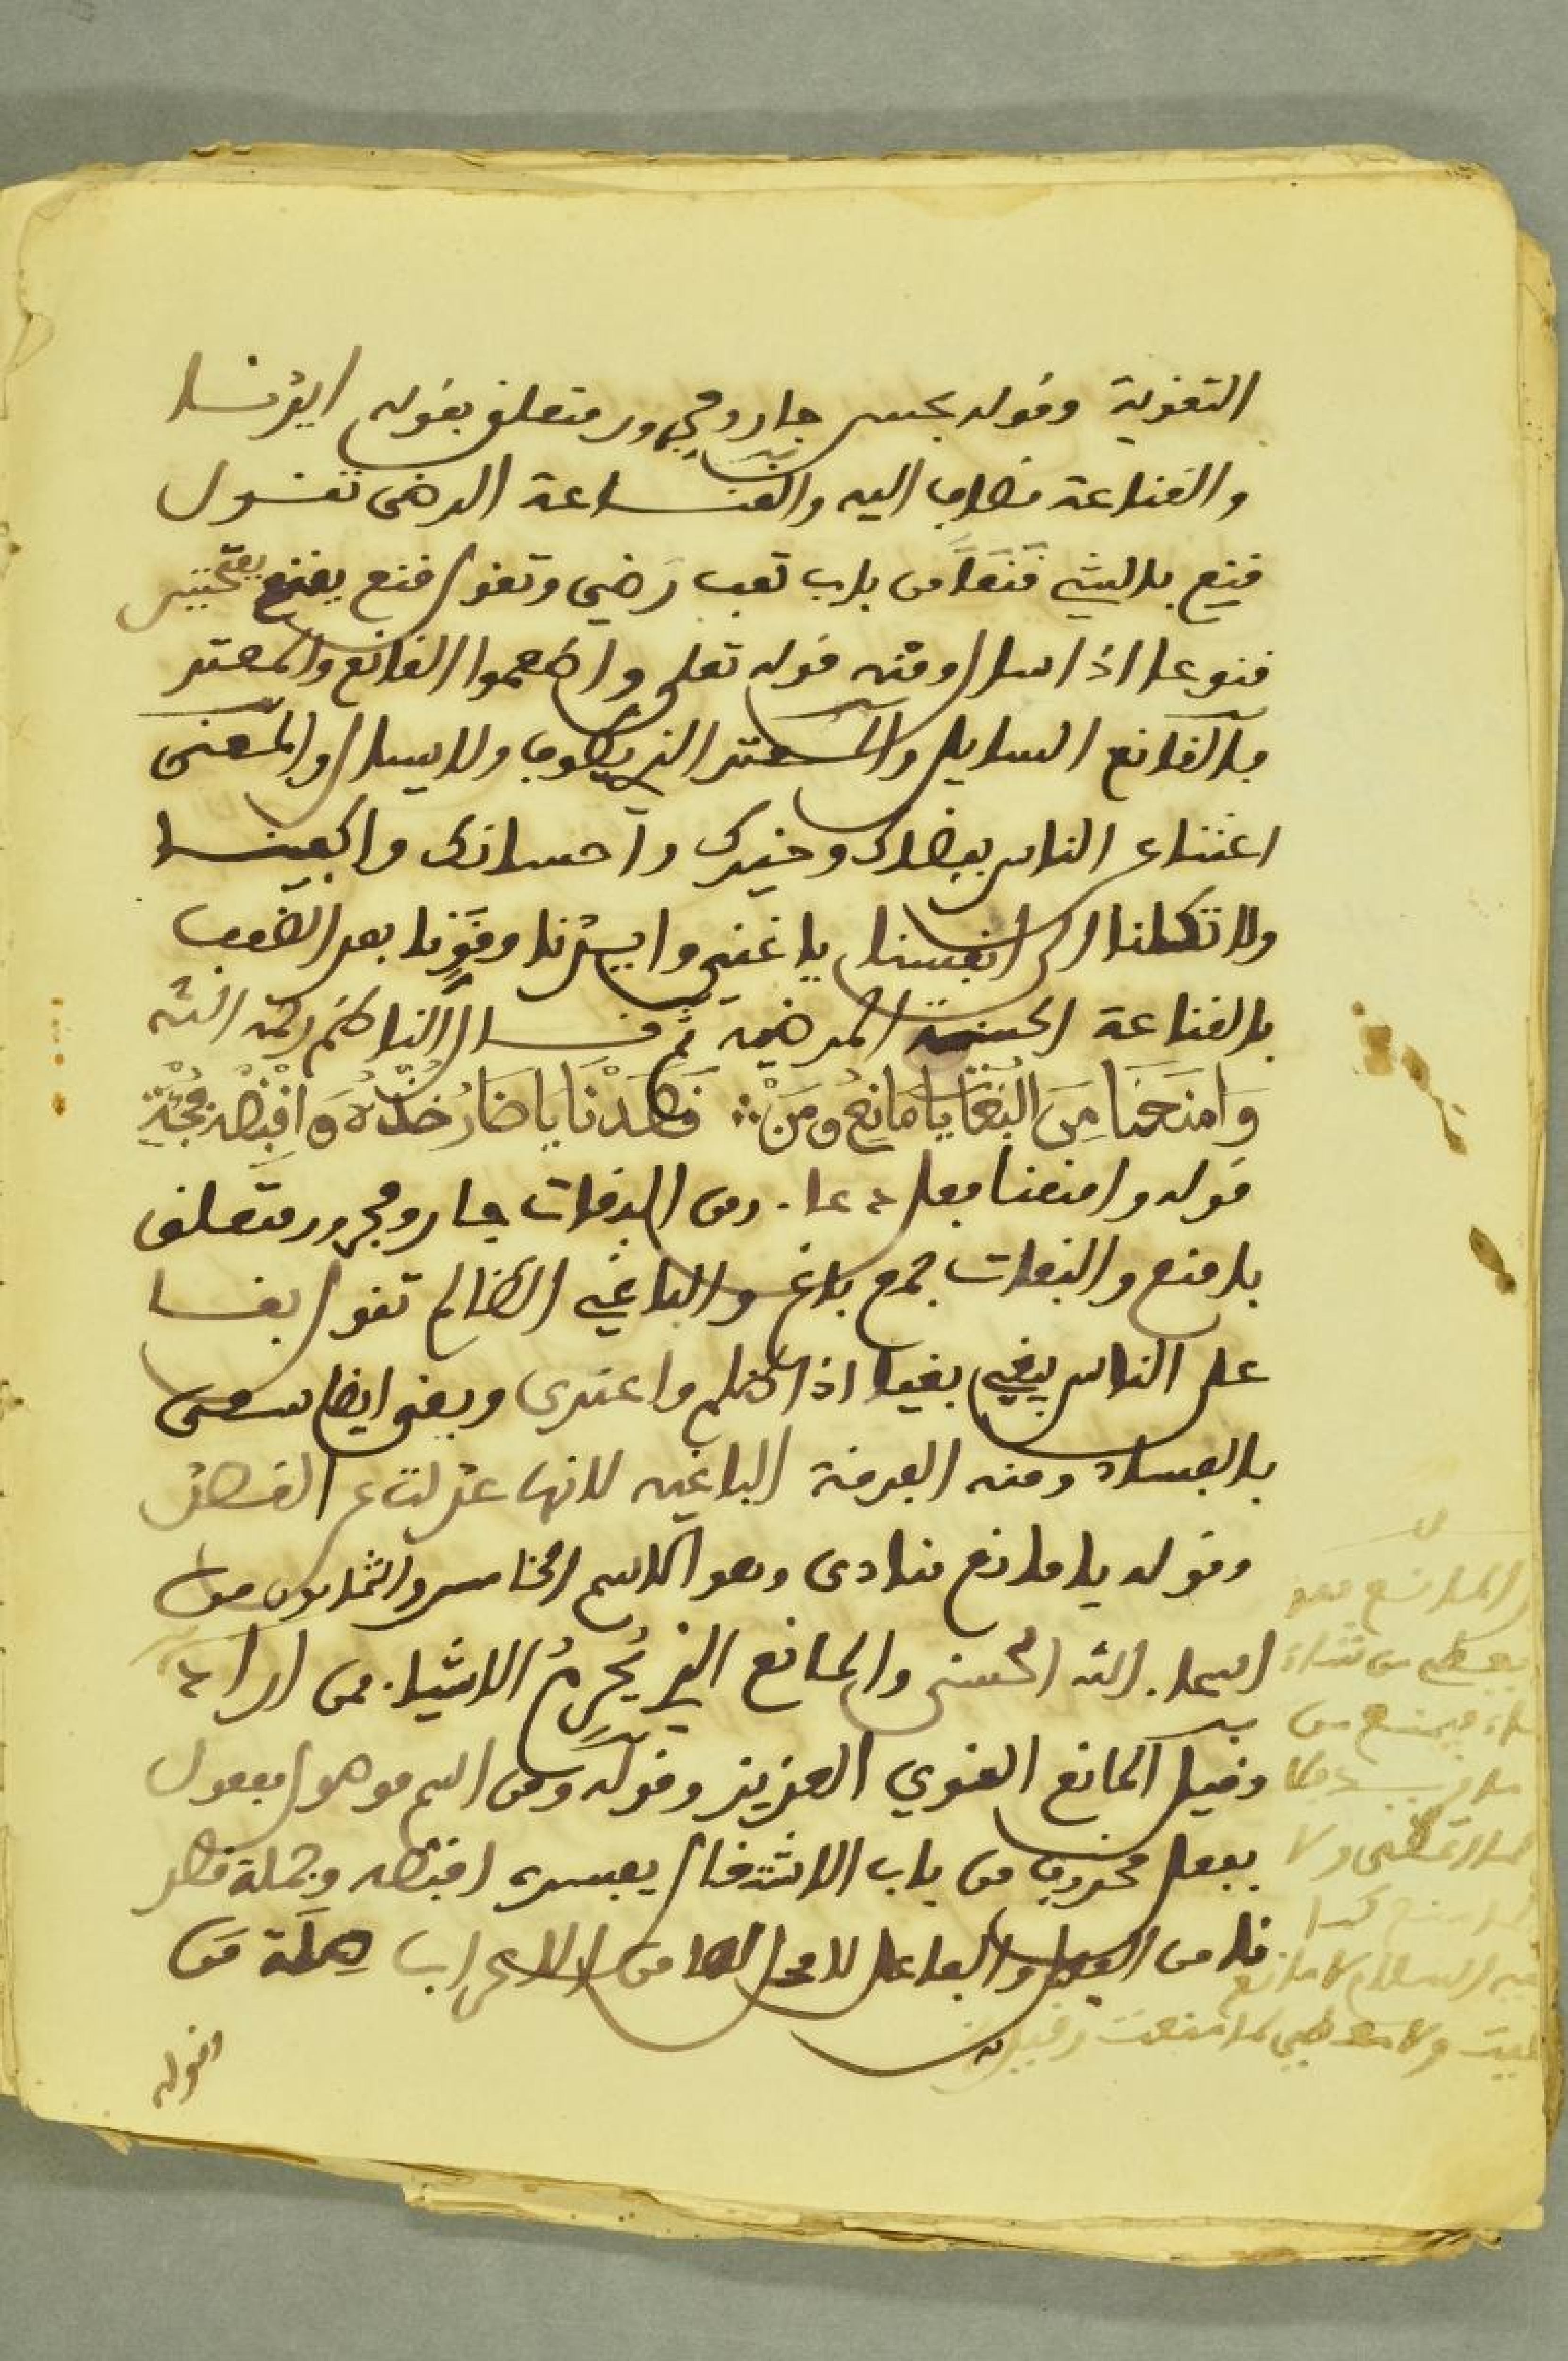 التقوية وقوله بحسن جار ومجرور متعلق بقوله ايدنا
والقناعة مضاف اليه والقناعة الرضى تقول
قنع بالشيء قنعا من باب تعب رضي وتقول قنع يقنع بفتحتين
قنوعا اذا سال ومنه قوله تعلى واطعموا القانع والمعتر
فالقانع السايل والمعتر الذي يطوف ولا يسال والمعنى
اغننا عن الناس بفضلك وخيرك واحسانك واكفينا
ولا تكلنا الى انفسنا يا غني وايدنا وقونا بعد الضعف
بالقناعة الحسنة المرضية ثم قال الناظم رحمه الله
وَامنَعنَا مِنَ البُغَاةِ يا مَانِعُ وَمَنْ ∴ قَصَدْنَا يَا ضَارُ خُذْهُ وَاقبضه
قوله وامنعنا فعل دعاء ومن البغات جار ومجرور متعلق
بامنع والبغات جمع باغ والباغي الظالم تقول بغا
على الناس يبغي بغيا اذا ظلم واعتدى وبغى ايضا سعى
بالفساد ومنه الفرقة الباغية لانها عدلت عن القصد
وقوله يا مانع منادى وهو الاسم الخامس والثمانون من
اسماء الله الحسنى والمانع الذي يُحرِمُ الاشياء من اراد
وقيل المانع القوي العزيز وقوله ومن اسم موصول مفعول
بفعل محذوف من باب الاشتغال يفسره اقبضه وجملة قصد
نا من الفعل والفاعل لا محل لها من الاعراب صلة من
وقوله
المانع فهو
يعطي من شاء
ويمنع من
عليه السلام لا مانع
ولا معطي لما منعت وقيل